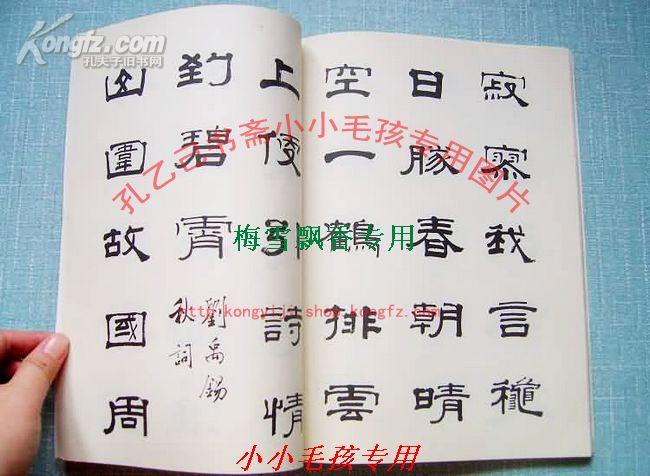 Kongfz.com
孔夫子旧书网
寂寥我言龝
日勝春朝晴
空一鶴排雲
上便引詩情
到碧霄
劉禹錫
秋詞
山圍故國周
孔乙己书斋小小毛孩专用图片
梅雪飘香专用
http://kongyiji.shop.kongfz.com
小小毛孩专用